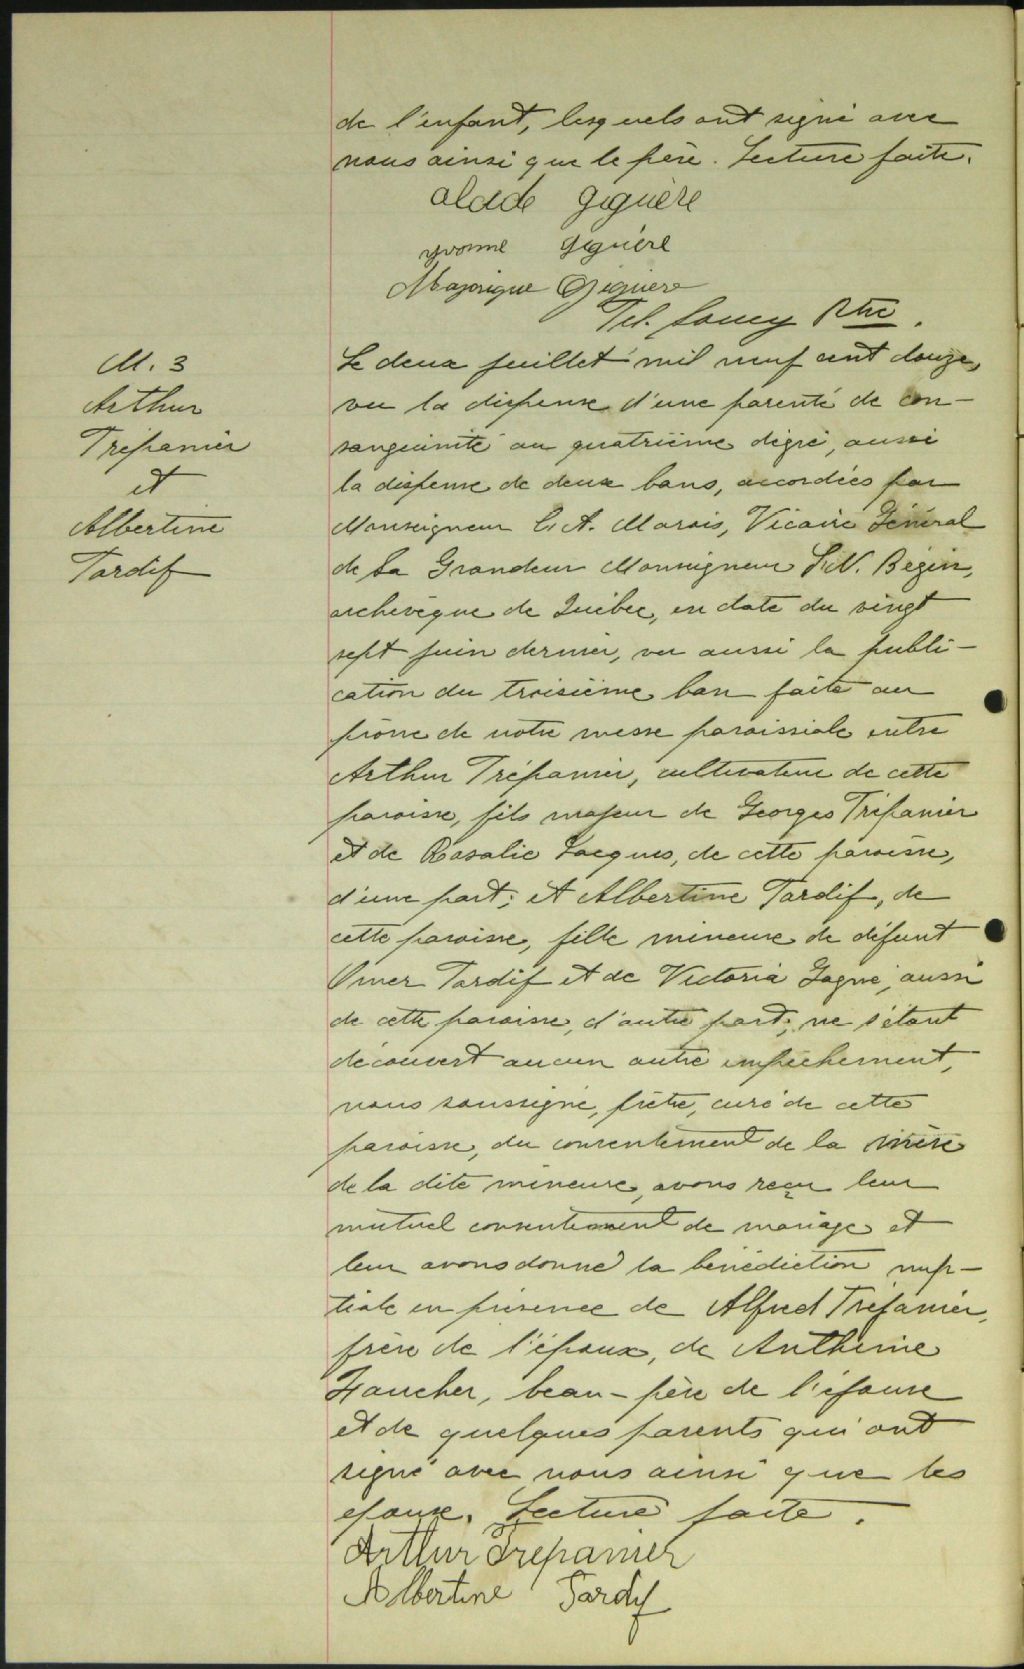 de l'enfant, lesquels ont signé avec
nous ainsi que le père. Lecture faite.
Alcide Giguère
Yvonne Giguère
Majorique Giguère
Tel. Soucy Ptre.
M. 3
Arthur
Trépanier
et
Albertine
Tardif
Le deux juillet mil neuf cent douze,
vu la dispense d'une parenté de con-
sanguinité au quatrième degré, aussi
la dispense de deux bans, accordées par
Monseigneur C. A. Marois, Vicaire Général
de Sa Grandeur Monseigneur L. N. Bégin,
archevêque de Québec, en date du vingt
sept juin dernier, vu aussi la publi-
cation du troisième ban faite au
prône de notre messe paroissiale entre
Arthur Trépanier, cultivateur de cette
paroisse, fils majeur de Georges Trépanier
et de Rosalie Jacques, de cette paroisse,
d'une part; et Albertine Tardif, de
cette paroisse, fille mineure de défunt
Omer Tardif et de Victoria Gagné, aussi
de cette paroisse, d'autre part; ne s'étant
découvert aucun autre empêchement,
nous soussigné, prêtre, curé de cette
paroisse, du consentement de la mère
de la dite mineure, avons reçu leur
mutuel consentement de mariage et
leur avons donné la bénédiction nup-
tiale en présence de Alfred Trépanier,
frère de l'époux, de Anthime
Faucher, beau-père de l'épouse
et de quelques parents qui ont
signé avec nous ainsi que les
époux. Lecture faite.
Arthur Trepanier
Albertine Tardif